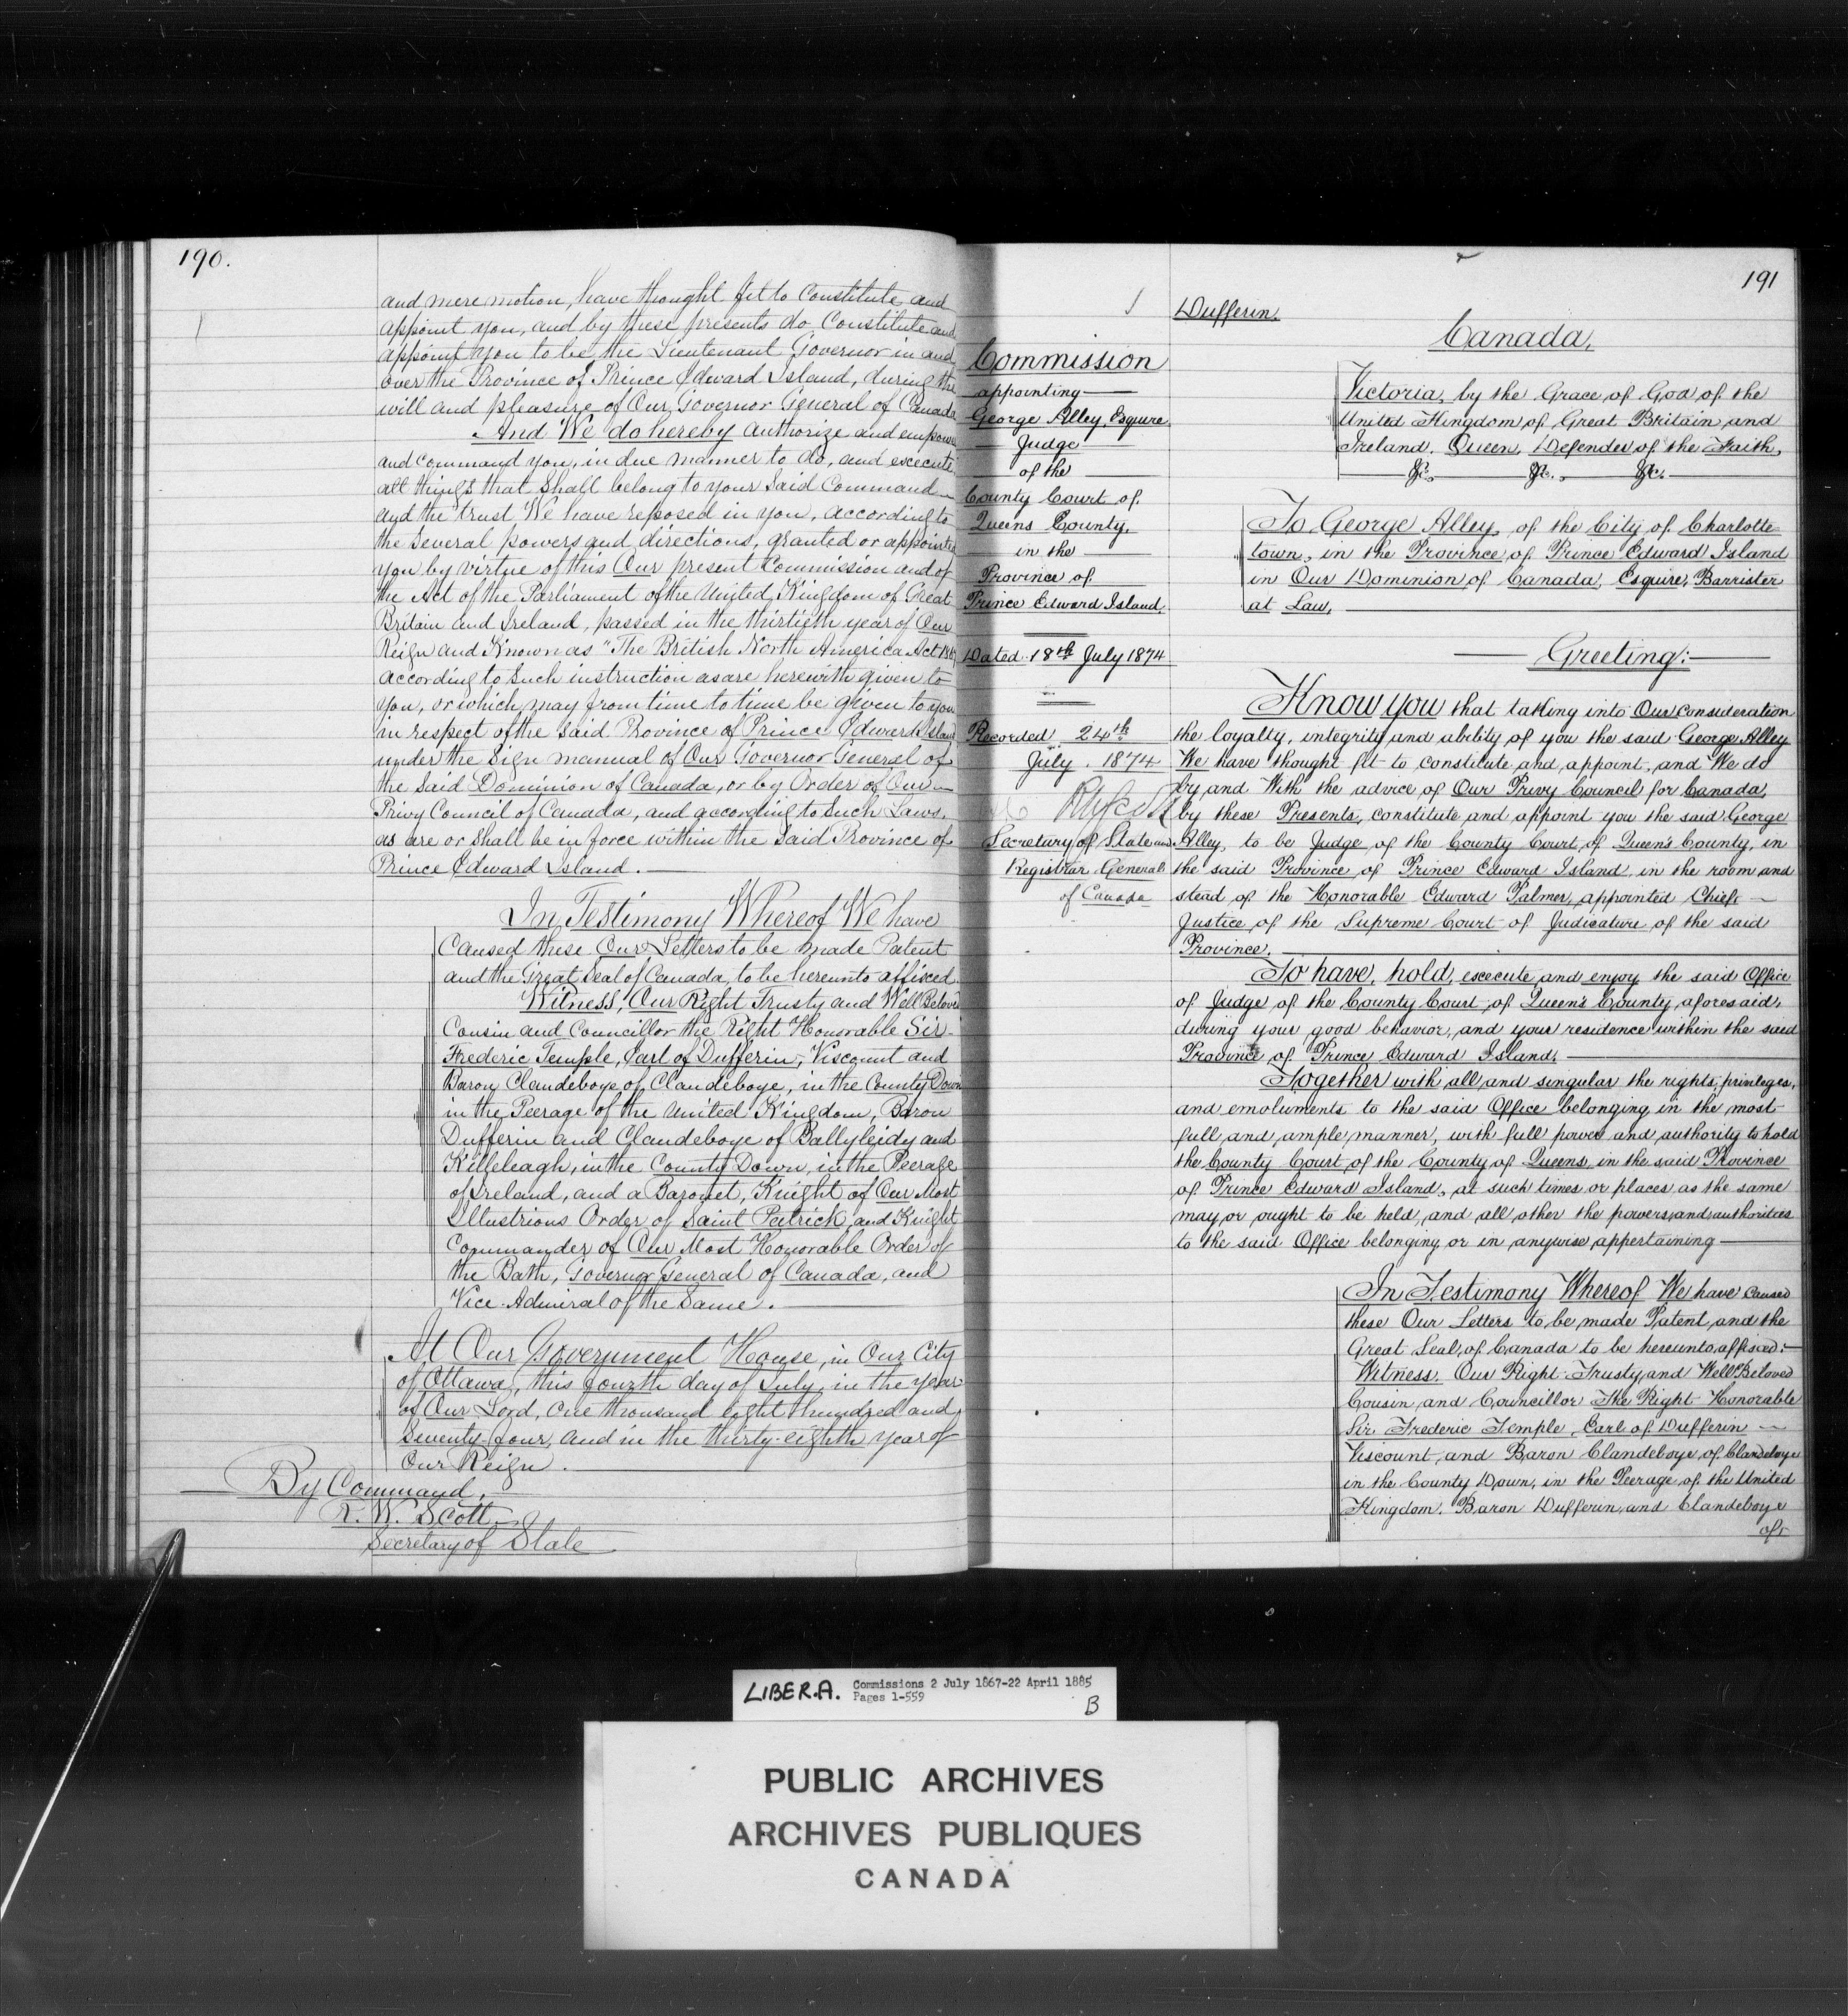 190.
and mere motion, have thought fit to Constitute and
appoint you, and by these presents do Constitute and
appoint you to be the Lieutenant Governor in and
over the Province of Prince Edward Island, during the
will and pleasure of Our Governor General of Canada
And We do hereby authorize and empower
and command you, in due manner to do, and execute
all things that shall belong to your said Command
and the trust We have reposed in you, according to
the several powers and directions, granted or appointed
you by virtue of this Our present Commission and of
the Act of the Parliament of the United Kingdom of Great
Britain and Ireland, passed in the thirtieth year of Our
Reign and Known as "The British North America Act 1867
according to such instruction as are herewith given to
you, or which may from time to time be given to you
in respect of the said Province of Prince Edward Island
under the Sign manual of Our Governor General of
the said Dominion of Canada, or by Order of Our
Privy Council of Canada, and according to such Laws,
as are or shall be in force within the said Province of
Prince Edward Island.
In Testimony Whereof We have
Caused these Our Letters to be made Patent
and the Great Seal of Canada, to be hereunto affixed.
Witness, Our Right Trusty and Well Beloved
Cousin and Councillor the Right Honorable Sir
Frederic Temple, Earl of Dufferin, Viscount and
Baron Clandeboye of Clandeboye, in the County Down
in the Peerage of the United Kingdom, Baron
Dufferin and Clandeboye of Ballyleidy and
Killeleagh, in the County Down, in the Peerage
of Ireland, and a Baronet, Knight of Our Most
Illustrious Order of Saint Patrick, and Knight
Commander of Our Most Honorable Order of
the Bath, Governor General of Canada, and
Vice Admiral of the Same.
At Our Government House, in Our City
of Ottawa, this fourth day of July, in the year
of Our Lord, one thousand eight hundred and
Seventy-four, and in the thirty-eighth year of
Our Reign.
By Command,
R. W. Scott
Secretary of State
191
Dufferin.
Commission
appointing
George Alley, Esquire
Judge
of the
County Court of
Queens County,
in the
Province of
Prince Edward Island.
Dated 18th July 1874
Recorded 24th
July. 1874
RWScott
Secretary of State and
Registrar General
of Canada
Canada,
Victoria, by the Grace of God of the
United Kingdom of Great Britain and
Ireland. Queen, Defender of the Faith,
&c. &c., &c.
To George Alley, of the City of Charlotte
town, in the Province of Prince Edward Island
in Our Dominion of Canada, Esquire, Barrister
at Law,
Greeting:
Know you that taking into Our consideration
the loyalty, integrity and ability of you the said George Alley
We have thought fit to constitute and appoint, and We do
by and With the advice of Our Privy Council for Canada,
by these Presents, constitute and appoint you the said George
Alley, to be Judge of the County Court of Queen's County, in
the said Province of Prince Edward Island, in the room and
stead of the Honorable Edward Palmer, appointed Chief
Justice of the Supreme Court of Judicature of the said
Province.
To have, hold, execute and enjoy the said Office
of Judge of the County Court of Queen's County, aforesaid,
during your good behavior, and your residence within the said
Province of Prince Edward Island.
Together with all and singular the rights, privileges,
and emoluments to the said Office belonging, in the most
full and ample manner, with full power and authority to hold
the County Court of the County of Queens in the said Province
of Prince Edward Island, at such times or places as the same
may or ought to be held, and all other the powers and authorities
to the said Office belonging or in anywise appertaining
In Testimony Whereof We have caused
these Our Letters to be made Patent, and the
Great Seal of Canada to be hereunto affixed:
Witness, Our Right Trusty and Well Beloved
Cousin and Councillor The Right Honorable
Sir Frederic Temple, Earl of Dufferin
Viscount and Baron Clandeboye, of Clandeboye
in the County Down, in the Peerage of the United
Kingdom, Baron Dufferin and Clandeboye
of
LIBER.A. Commissions 2 July 1867-22 April 1885
Pages 1-559
B
PUBLIC ARCHIVES
ARCHIVES PUBLIQUES
CANADA